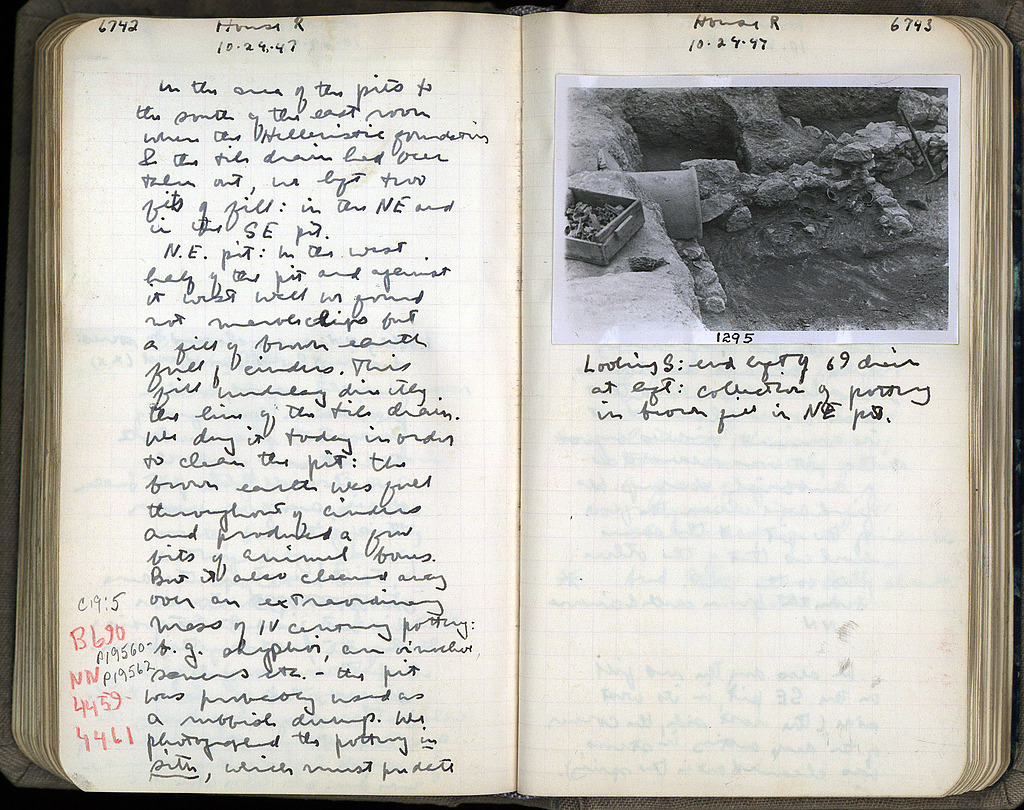 6742
House R
10·24·47
In the area of the pits to
the south of the east room
where the Hellenistic foundation
& the tile drain had been
taken out, we left two
pits of fill: in the NE and
in the SE pit.
N.E. pit: In the west
half of the pit and against
it west wall we found
not marble chips but
a fill of brown earth
full of cinders. This
fill underlay directly
the line of the tile drain.
We dug it today in order
to clean the pit: the
brown earth was full
throughout of cinders
and produced a few
bits of animal bones.
But it also cleaned away
over an extraordinary
mass of IV century pottery:
b.g. skyphoi, an oinochoe,
saucers etc. – the pit
was probably used as
a rubbish dump. We
photographed the pottery in
situ, which must predate
C19:5
B690
P19560-
P19562
NN
4459-
4461
6743
House R
10·24·47
1295
Looking S: end left of 69 drain
at left: collection of pottery
in brown fill in NE pit.